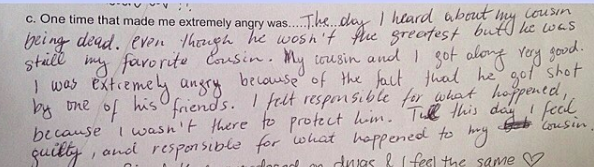 c. One time that made me extremely angry was......The..day I heard about my cousin
being dead. even though he wosn't the greatest but he was
still my favorite cousin. My cousin and I got along very good.
I was extremely angry because of the fact that he got shot
by one of his friends. I felt responsible for what happened,
because I wasn't there to protect him. Till this day I feel
guilty, and responsible for what happened to my cousin.
drugs & I feel the same ♡